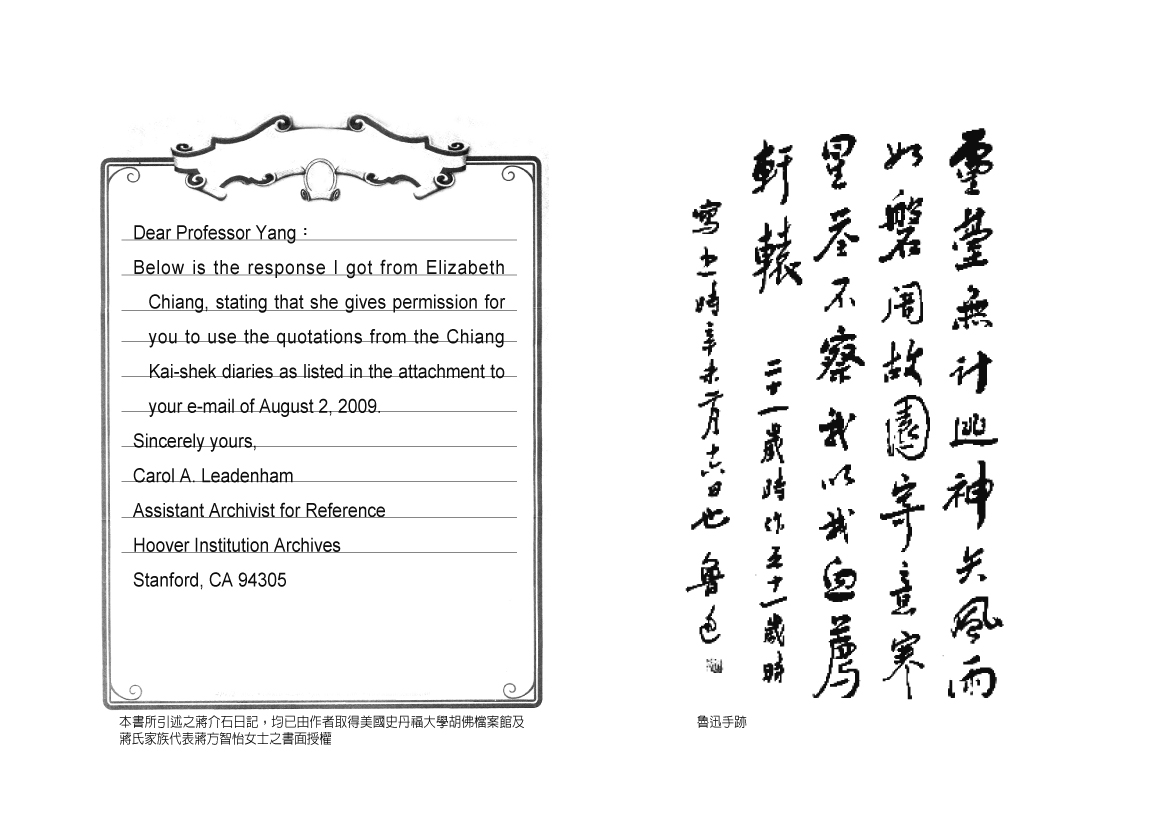 Dear Professor Yang：
Below is the response I got from Elizabeth
Chiang, stating that she gives permission for
you to use the quotations from the Chiang
Kai-shek diaries as listed in the attachment to
your e-mail of August 2, 2009.
Sincerely yours,
Carol A. Leadenham
Assistant Archivist for Reference
Hoover Institution Archives
Stanford, CA 94305
本書所引述之蔣介石日記，均已由作者取得美國史丹福大學胡佛檔案館及
蔣氏家族代表蔣方智怡女士之書面授權
靈臺無計逃神矢風雨
如磐闇故園寄意寒
星荃不察我以我血薦
軒轅 二十一歲時作五十一歲時
寫之時辛未二月十六日也 魯迅
魯迅手跡